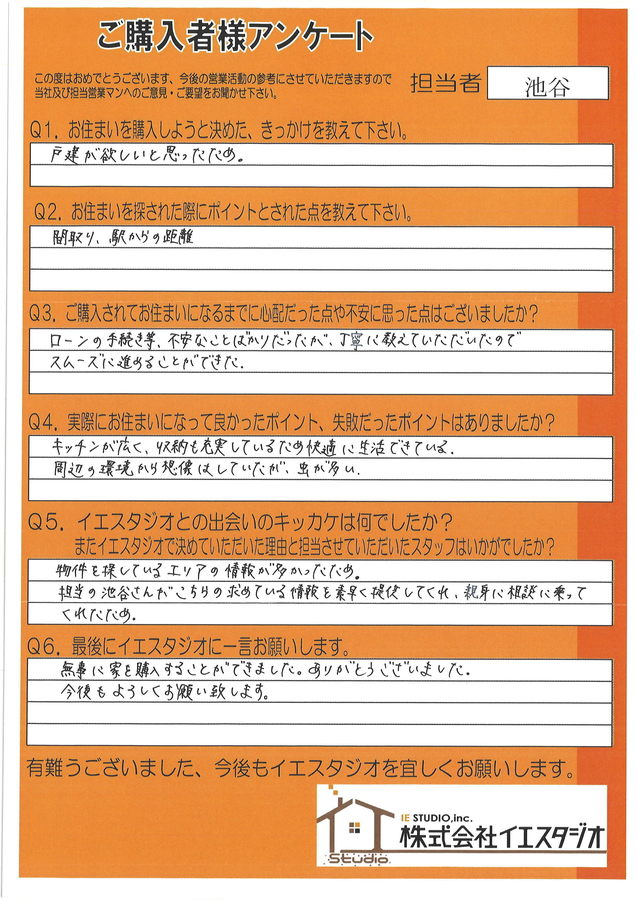 ご購入者様アンケート
この度はおめでとうございます、今後の営業活動の参考にさせていただきますので
当社及び担当営業マンへのご意見・ご要望をお聞かせ下さい。
担当者 池谷
Q1. お住まいを購入しようと決めた、きっかけを教えて下さい。
戸建が欲しいと思ったため。
Q2. お住まいを探された際にポイントとされた点を教えて下さい。
間取り、駅からの距離
Q3. ご購入されてお住まいになるまでに心配だった点や不安に思った点はございましたか？
ローンの手続き等、不安なことばかりだったが、丁寧に教えていただいたので
スムーズに進めることができた.
Q4. 実際にお住まいになって良かったポイント、失敗だったポイントはありましたか？
キッチンが広く、収納も充実しているため快適に生活できている.
周辺の環境から想像はしていたが、虫が多い.
Q5. イエスタジオとの出会いのキッカケは何でしたか？
またイエスタジオで決めていただいた理由と担当させていただいたスタッフはいかがでしたか？
物件を探しているエリアの情報が多かったため。
担当の池谷さんがこちらの求めている情報を素早く提供してくれ、親身に相談に乗って
くれたため.
Q6. 最後にイエスタジオに一言お願いします。
無事に家を購入することができました。ありがとうございました.
今後もよろしくお願い致します。
有難うございました、今後もイエスタジオを宜しくお願いします。
IE STUDIO,inc.
株式会社イエスタジオ
Studio